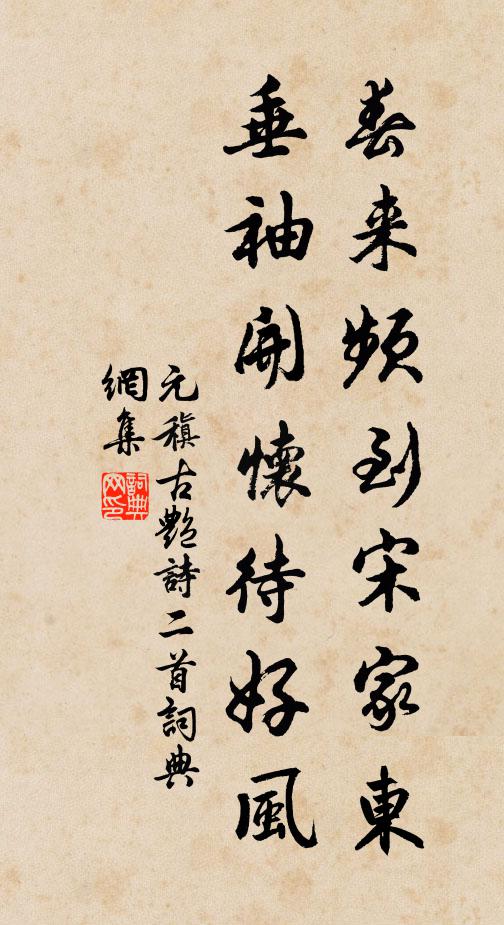 春来頻到宋家東
垂袖開懷待好風
元稹古艷詩二首詞典
網集
詞典网印